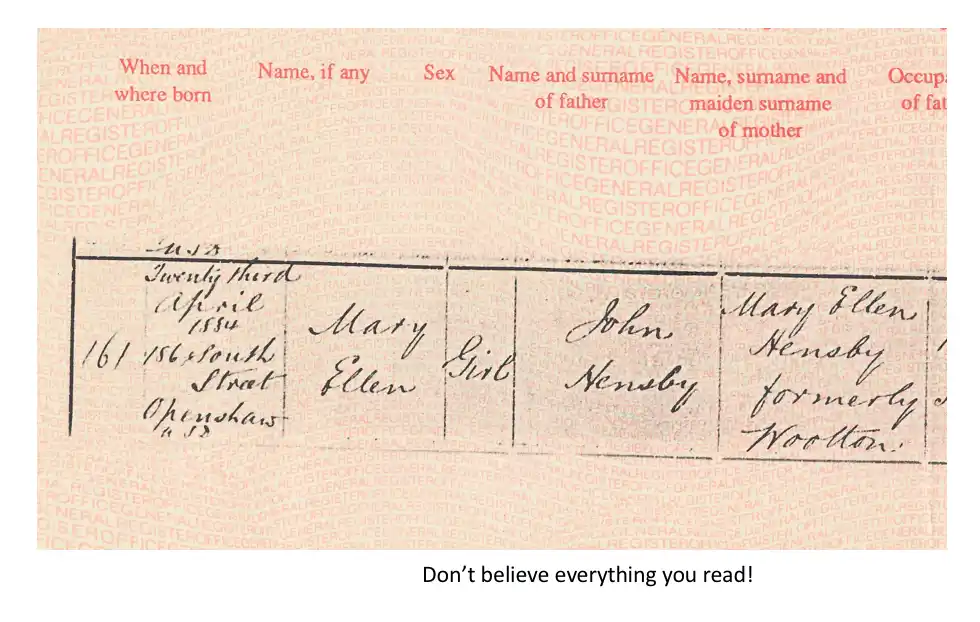 When and where born
Name, if any
Sex
Name and surname of father
Name, surname and maiden surname of mother
Occupa
of fat
USD
161
Twenty third
April
1884
156 South
Street
Openshaw
USD
Mary
Ellen
Girl
John
Hensby
Mary Ellen
Hensby
formerly
Wootton
Don't believe everything you read!